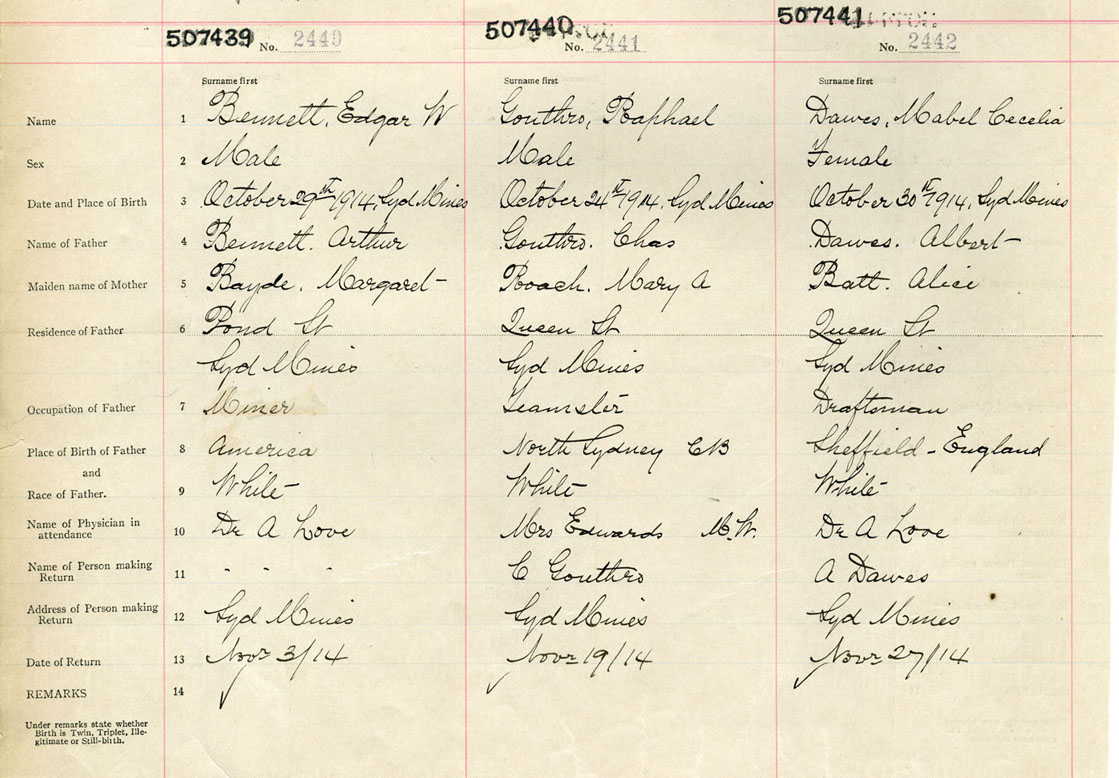 507439 No. 2440 507440 No. 2441 507441 No. 2442
Surname first Surname first Surname first
Name 1 Bennett, Edgar W Gouthro, Raphael Dawes, Mabel Cecelia
Sex 2 Male Male Female
Date and Place of Birth 3 October 29th 1914, Syd Mines October 24th 1914, Syd Mines October 30th 1914, Syd Mines
Name of Father 4 Bennett. Arthur Gouthro. Chas Dawes. Albert
Maiden name of Mother 5 Bayde. Margaret Roach. Mary A Batt. Alice
Residence of Father 6 Pond St Queen St Queen St
Syd Mines Syd Mines Syd Mines
Occupation of Father 7 Miner Teamster Draftsman
Place of Birth of Father 8 America North Sydney CB Sheffield - England
and
Race of Father. 9 White White White
Name of Physician in
attendance 10 Dr A Love Mrs Edwards M.W. Dr A Love
Name of Person making
Return 11 " " " C Gouthro A Dawes
Address of Person making
Return 12 Syd Mines Syd Mines Syd Mines
Date of Return 13 Novr 3/14 Novr 19/14 Novr 27/14
REMARKS 14
Under remarks state whether
Birth is Twin, Triplet, Ille-
gitimate or Still-birth.